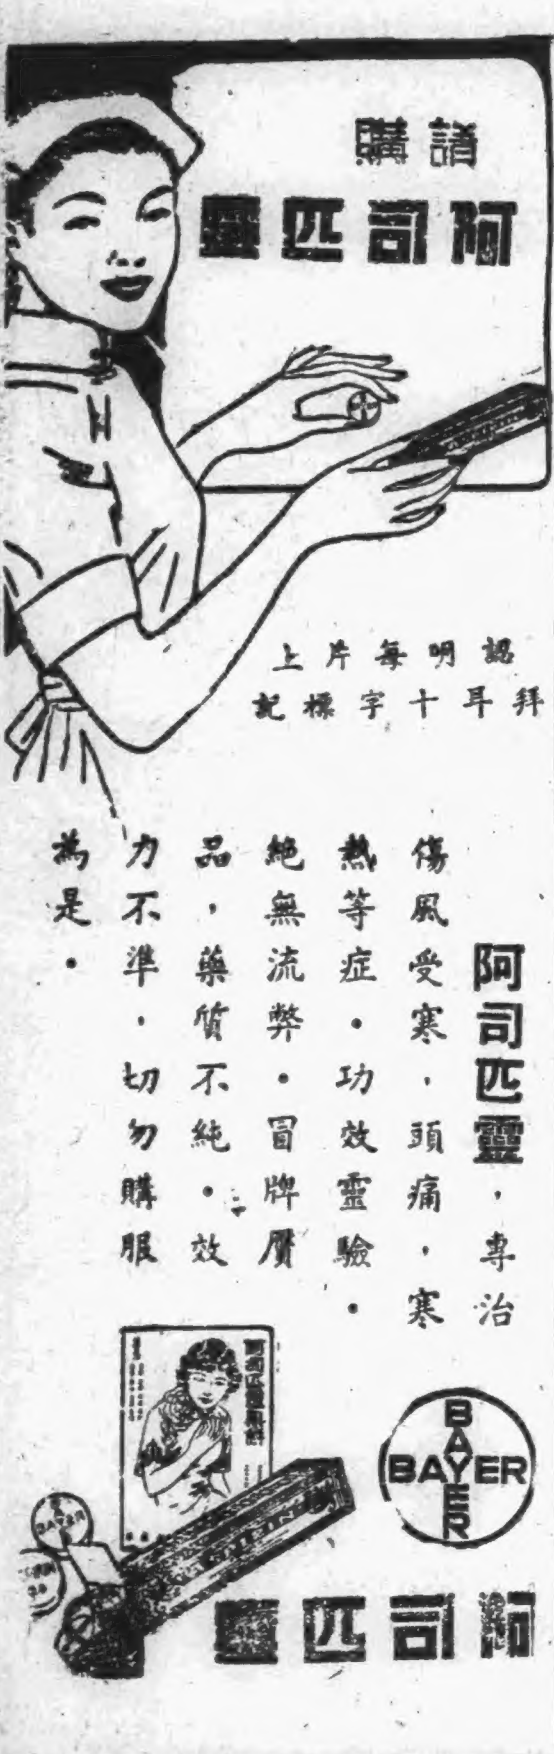 請購
阿司匹靈
認明每片上
拜耳十字標記
阿司匹靈，專治
傷風受寒，頭痛，寒
熱等症。功效靈驗。
絕無流弊。冒牌贋
品，藥質不純。效
力不準，切勿購服
為是。
BAYER
BAYER
BAYER
阿司匹靈